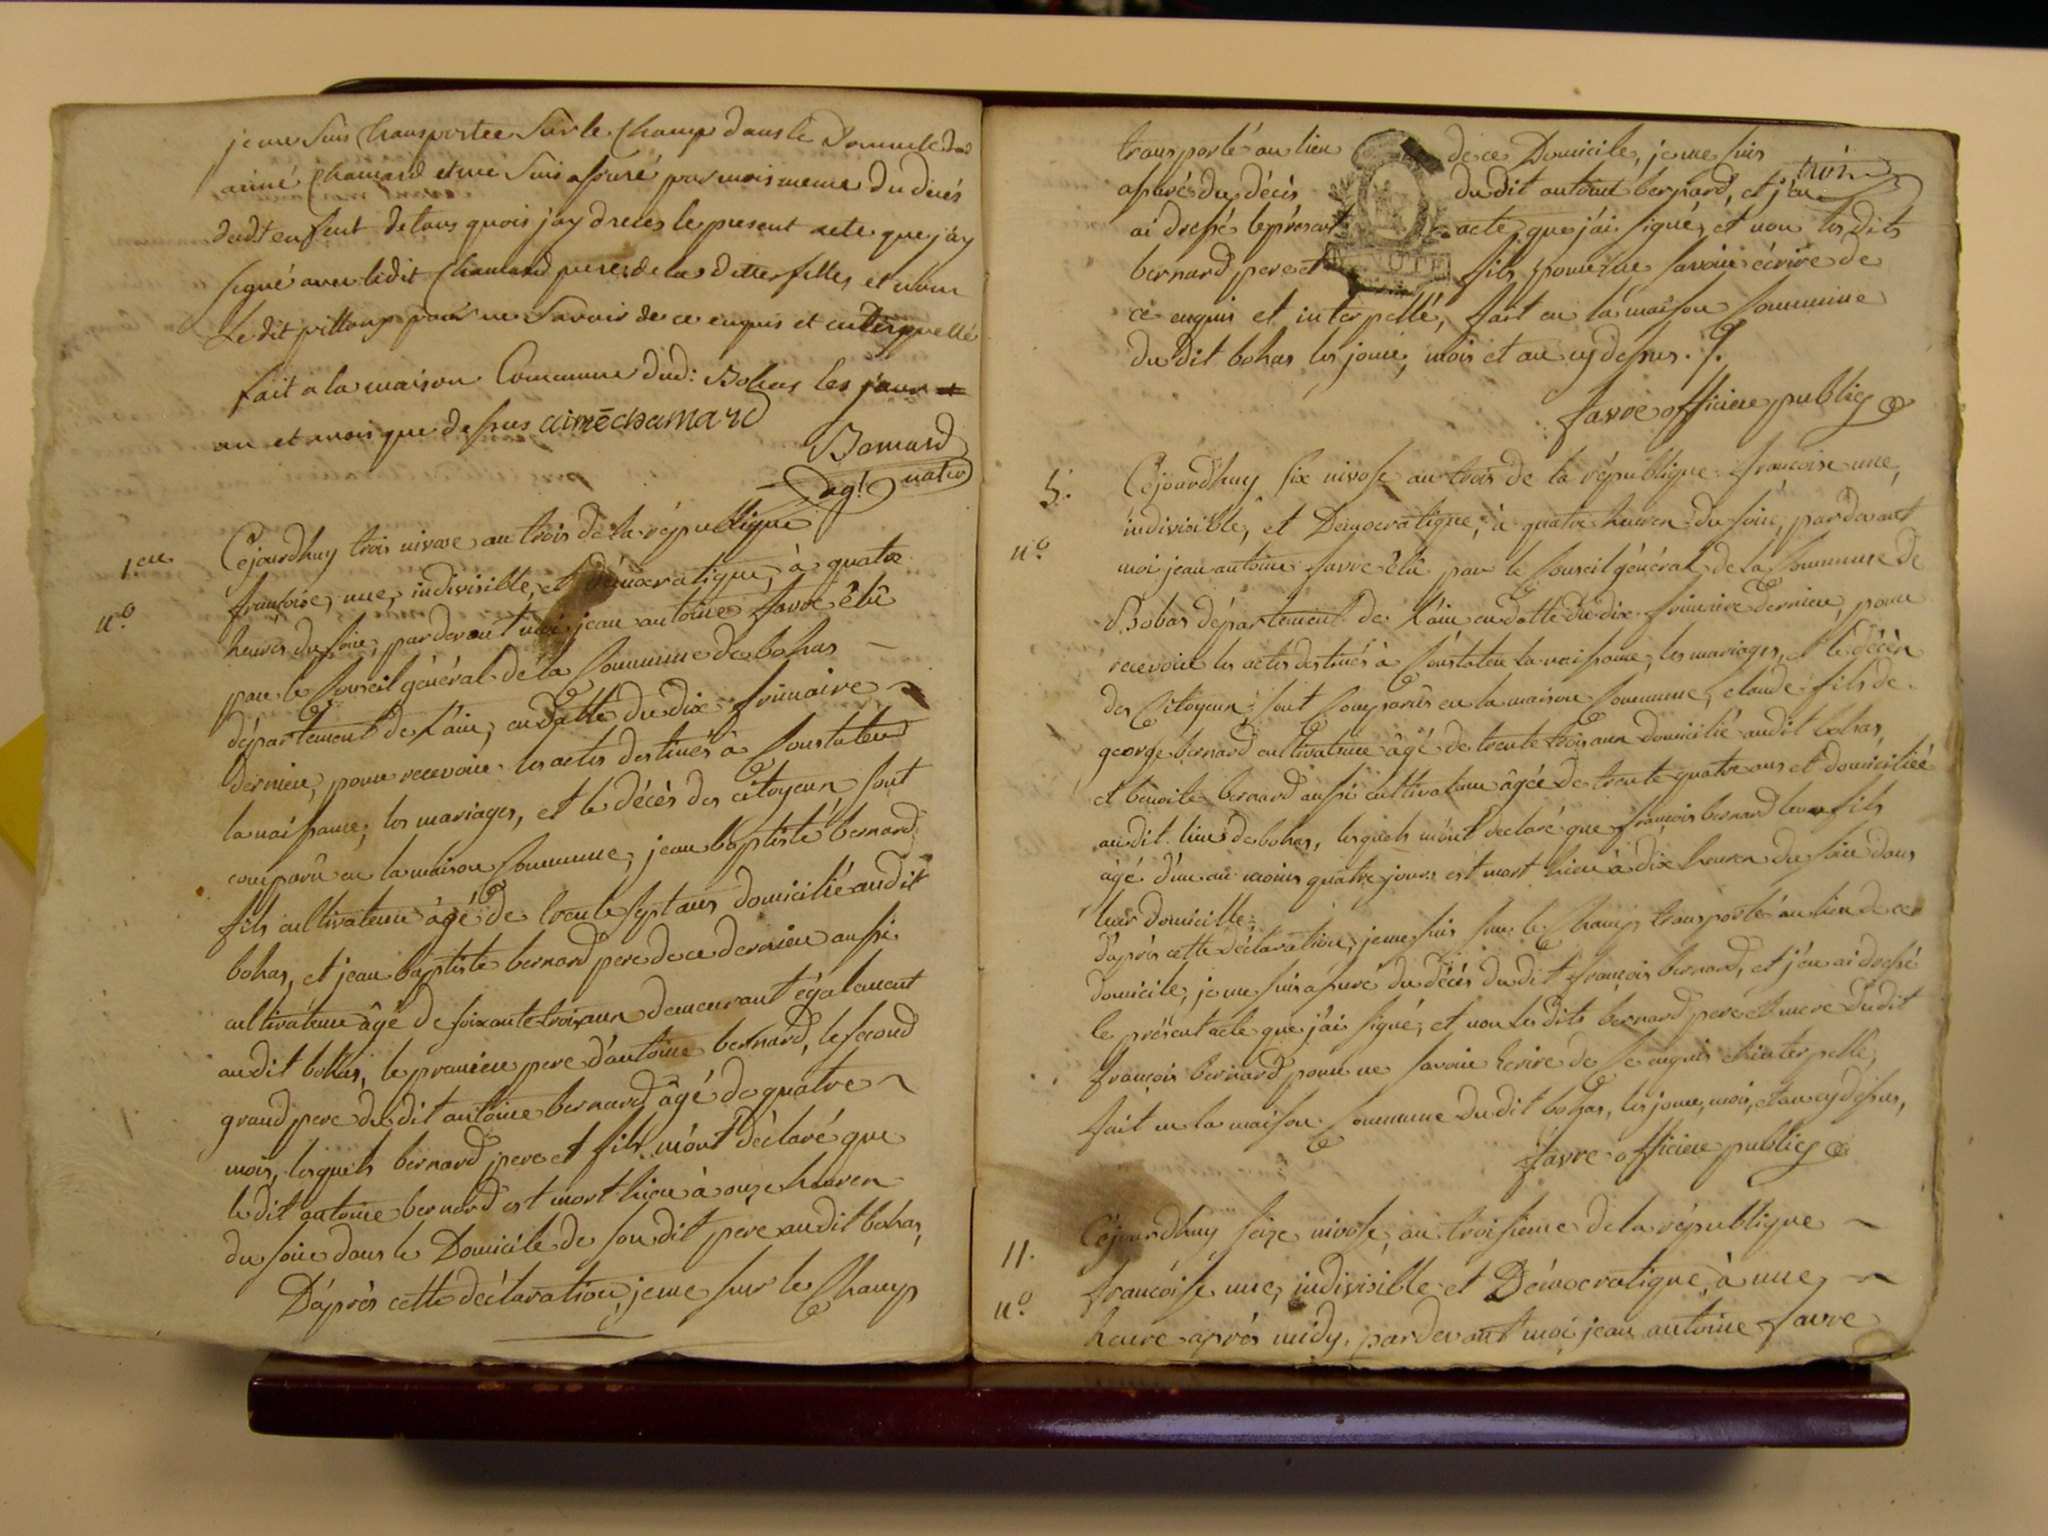 je me suis transportee sur le champ dans le Domicile dud
aimé chamard et me suis assuré par mois meme du decés
dudt enfent de tous quois jay drecés le present acte que jay
signé avec ledit Chamard pere de la ditte filles et non
Le dit pour ne Savoir de ce enquis et enterpuellé
fait a la maison Commune dud: Bohas les jour et
an et mois que dessus aimé chamard
Bernard
agt nató
1eu
Cejourdhuy trois nivose an trois de la république
françoise, une, indivisible, et démocratique, à quatre
n.o
heures du soir, pardevant moi jean antoine favre élû
par le Conseil général de la Commune de bohas
département de L'ain, en datte du dix frimaire
dernieu, pour recevoir les actes destinés à Constater
la naissance, les mariages, et le décès des citoyeun sont
comparû en la maison Commune, jean baptiste bernard
fils cultivateur âgé de trente sept ans domicilié audit
bohas, et jean baptiste bernard pere de ce dernieu aussi
cultivateur âgé de soixante trois ans demeurant également
audit bohas, le premieu pere d'antoine bernard, le second
grand pere du dit antoine bernard âgé de quatre
mois, lesquels bernard pere et fils m'ont déclaré que
le dit antoine bernard est mort hieu à onze heures
du soir dans le Domicile de son dit pere audit bohas,
D'après cette déclaration, je me sur le Champ
transporté au lieu de ce Domicile, je me suis
assurés du décès du dit antoine bernard, et j'en
ai dressé le présent acte que j'ai signé, et non les dits
bernard pere et fils pour ne savoir écrire de
MINUTE
ce enquis et interpellé, fait en la maison Commune
du dit bohas les jour, mois et an cy dessus.
favre officieu public
5.
Cejourdhuy six nivose an trois de la république françoise une,
indivisible, et Démocratique, à quatre heures du soir, pardevant
n.o
moi jean antoine favre élû par le Conseil général de la Commune de
Bohas département de L'ain en datte du dix frimaire dernieu, pour
recevoir les actes destinés à Constater la naissance, les mariages, et le décès
des Citoyeun, sont Comparus en la maison Commune, claude fils de
george bernard cultivateur âgé de trente trois ans domicilié audit bohas,
et benoite bernard aussi cultivateur âgée de trente quatre ans et domiciliée
audit lieu de bohas, lesquels m'ont declaré que françois bernard leur fils
âgé d'un an moins quatre jours est mort hieu à dix heures du soir dans
leur domicille,
d'après cette déclaration, je me suis sur le Champ transporté au lieu de ce
domicile, je me suis assuré du décès du dit françois bernard, et j'en ai dressé
le présent acte que j'ai signé, et non les dits bernard pere et mere du dit
françois bernard pour ne savoir écrire de ce enquis et interpellé,
fait en la maison Commune du dit bohas, les jour, mois, et an cy dessus,
favre officieu public
11.
Cejourdhuy seize nivose, an troisieme de la république
n.o
françoise une, indivisible et Démocratique, à une
heure après midy, pardevant moi jean antoine favre